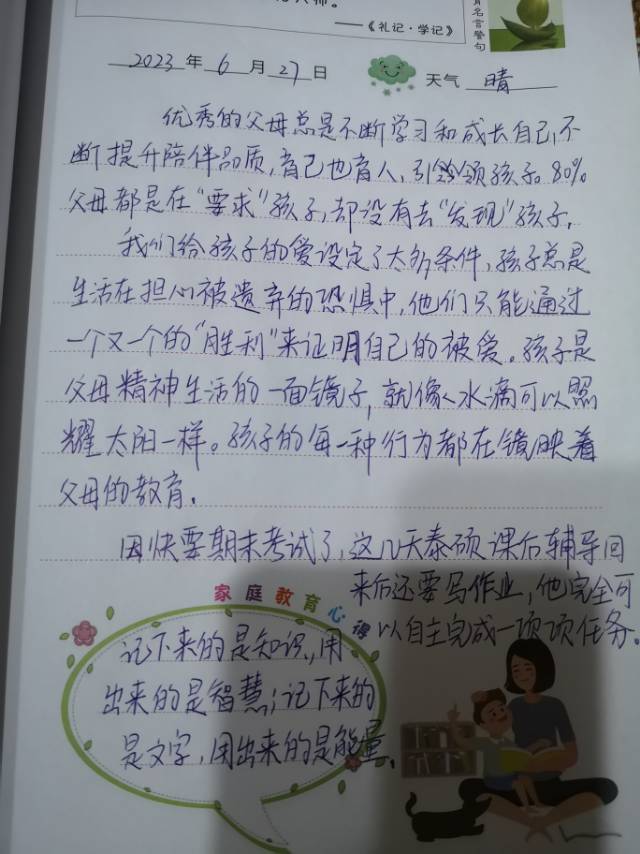 ——《礼记·学记》
育名言警句
2023年6月27日 天气 晴
优秀的父母总是不断学习和成长自己,不
断提升陪伴品质,育己也育人,引领孩子。80%
父母都是在“要求”孩子,却没有去“发现”孩子。
我们给孩子的爱设定了太多条件,孩子总是
生活在担心被遗弃的恐惧中,他们只能通过
一个又一个的“胜利”来证明自己的被爱。孩子是
父母精神生活的一面镜子,就像水滴可以照
耀太阳一样。孩子的每一种行为都在镜映着
父母的教育。
因快要期末考试了,这几天泰硕课后辅导回
来后还要写作业,他完全可
以自主完成一项项任务。
家庭教育心得
记下来的是知识,用
出来的是智慧;记下来的
是文字,用出来的是能量。